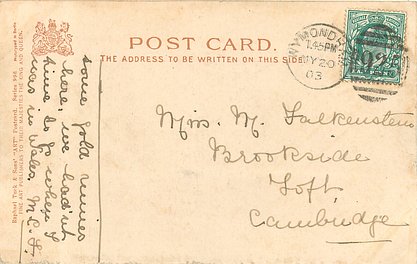 POST CARD.
THE ADDRESS TO BE WRITTEN ON THIS SIDE
1.45PM
MY 20
03
Miss. M. Falkenstein
Brookside
Toft
Cambridge
some gold mines
here, we had'nt
time to go when I
was in Wales M.C.F.
Raphael Tuck & Sons' "ART" Postcard. Series 998
FINE ART PUBLISHERS TO THEIR MAJESTIES THE KING AND QUEEN.